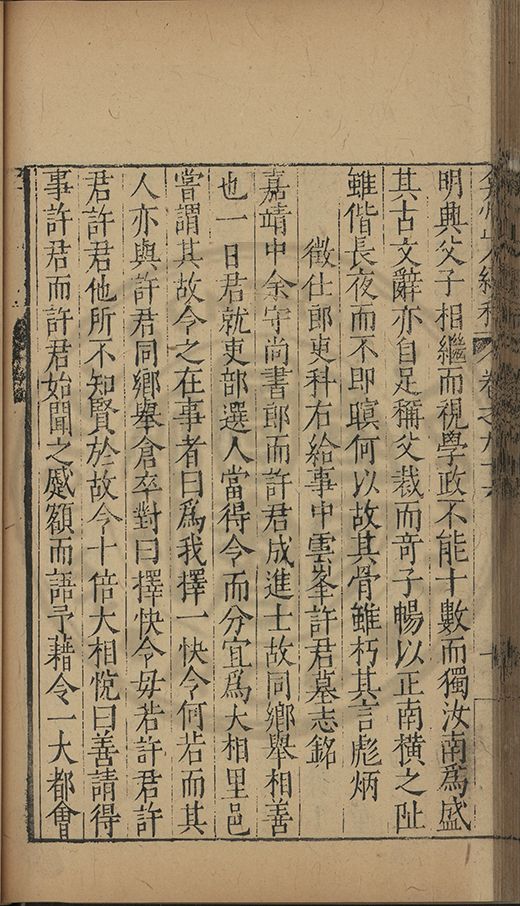 明典父子相繼而視學政不能十數而獨汝南爲盛
其古文辭亦自足稱父裁而竒子暢以正南橫之阯
雖偕長夜而不即瞑何以故其骨雖朽其言彪炳
徵仕郎吏科右給事中雲峯許君墓志銘
嘉靖中余守尚書郎而許君成進士故同鄉舉相善
也一日君就吏部選人當得令而分宜爲大相里邑
嘗謂其故令之在事者曰爲我擇一快令何若而其
人亦與許君同鄉舉倉卒對曰擇快令毋若許君許
君許君他所不知賢於故今十倍大相悅曰善請得
事許君而許君始聞之蹙額而語予藉令一大都會